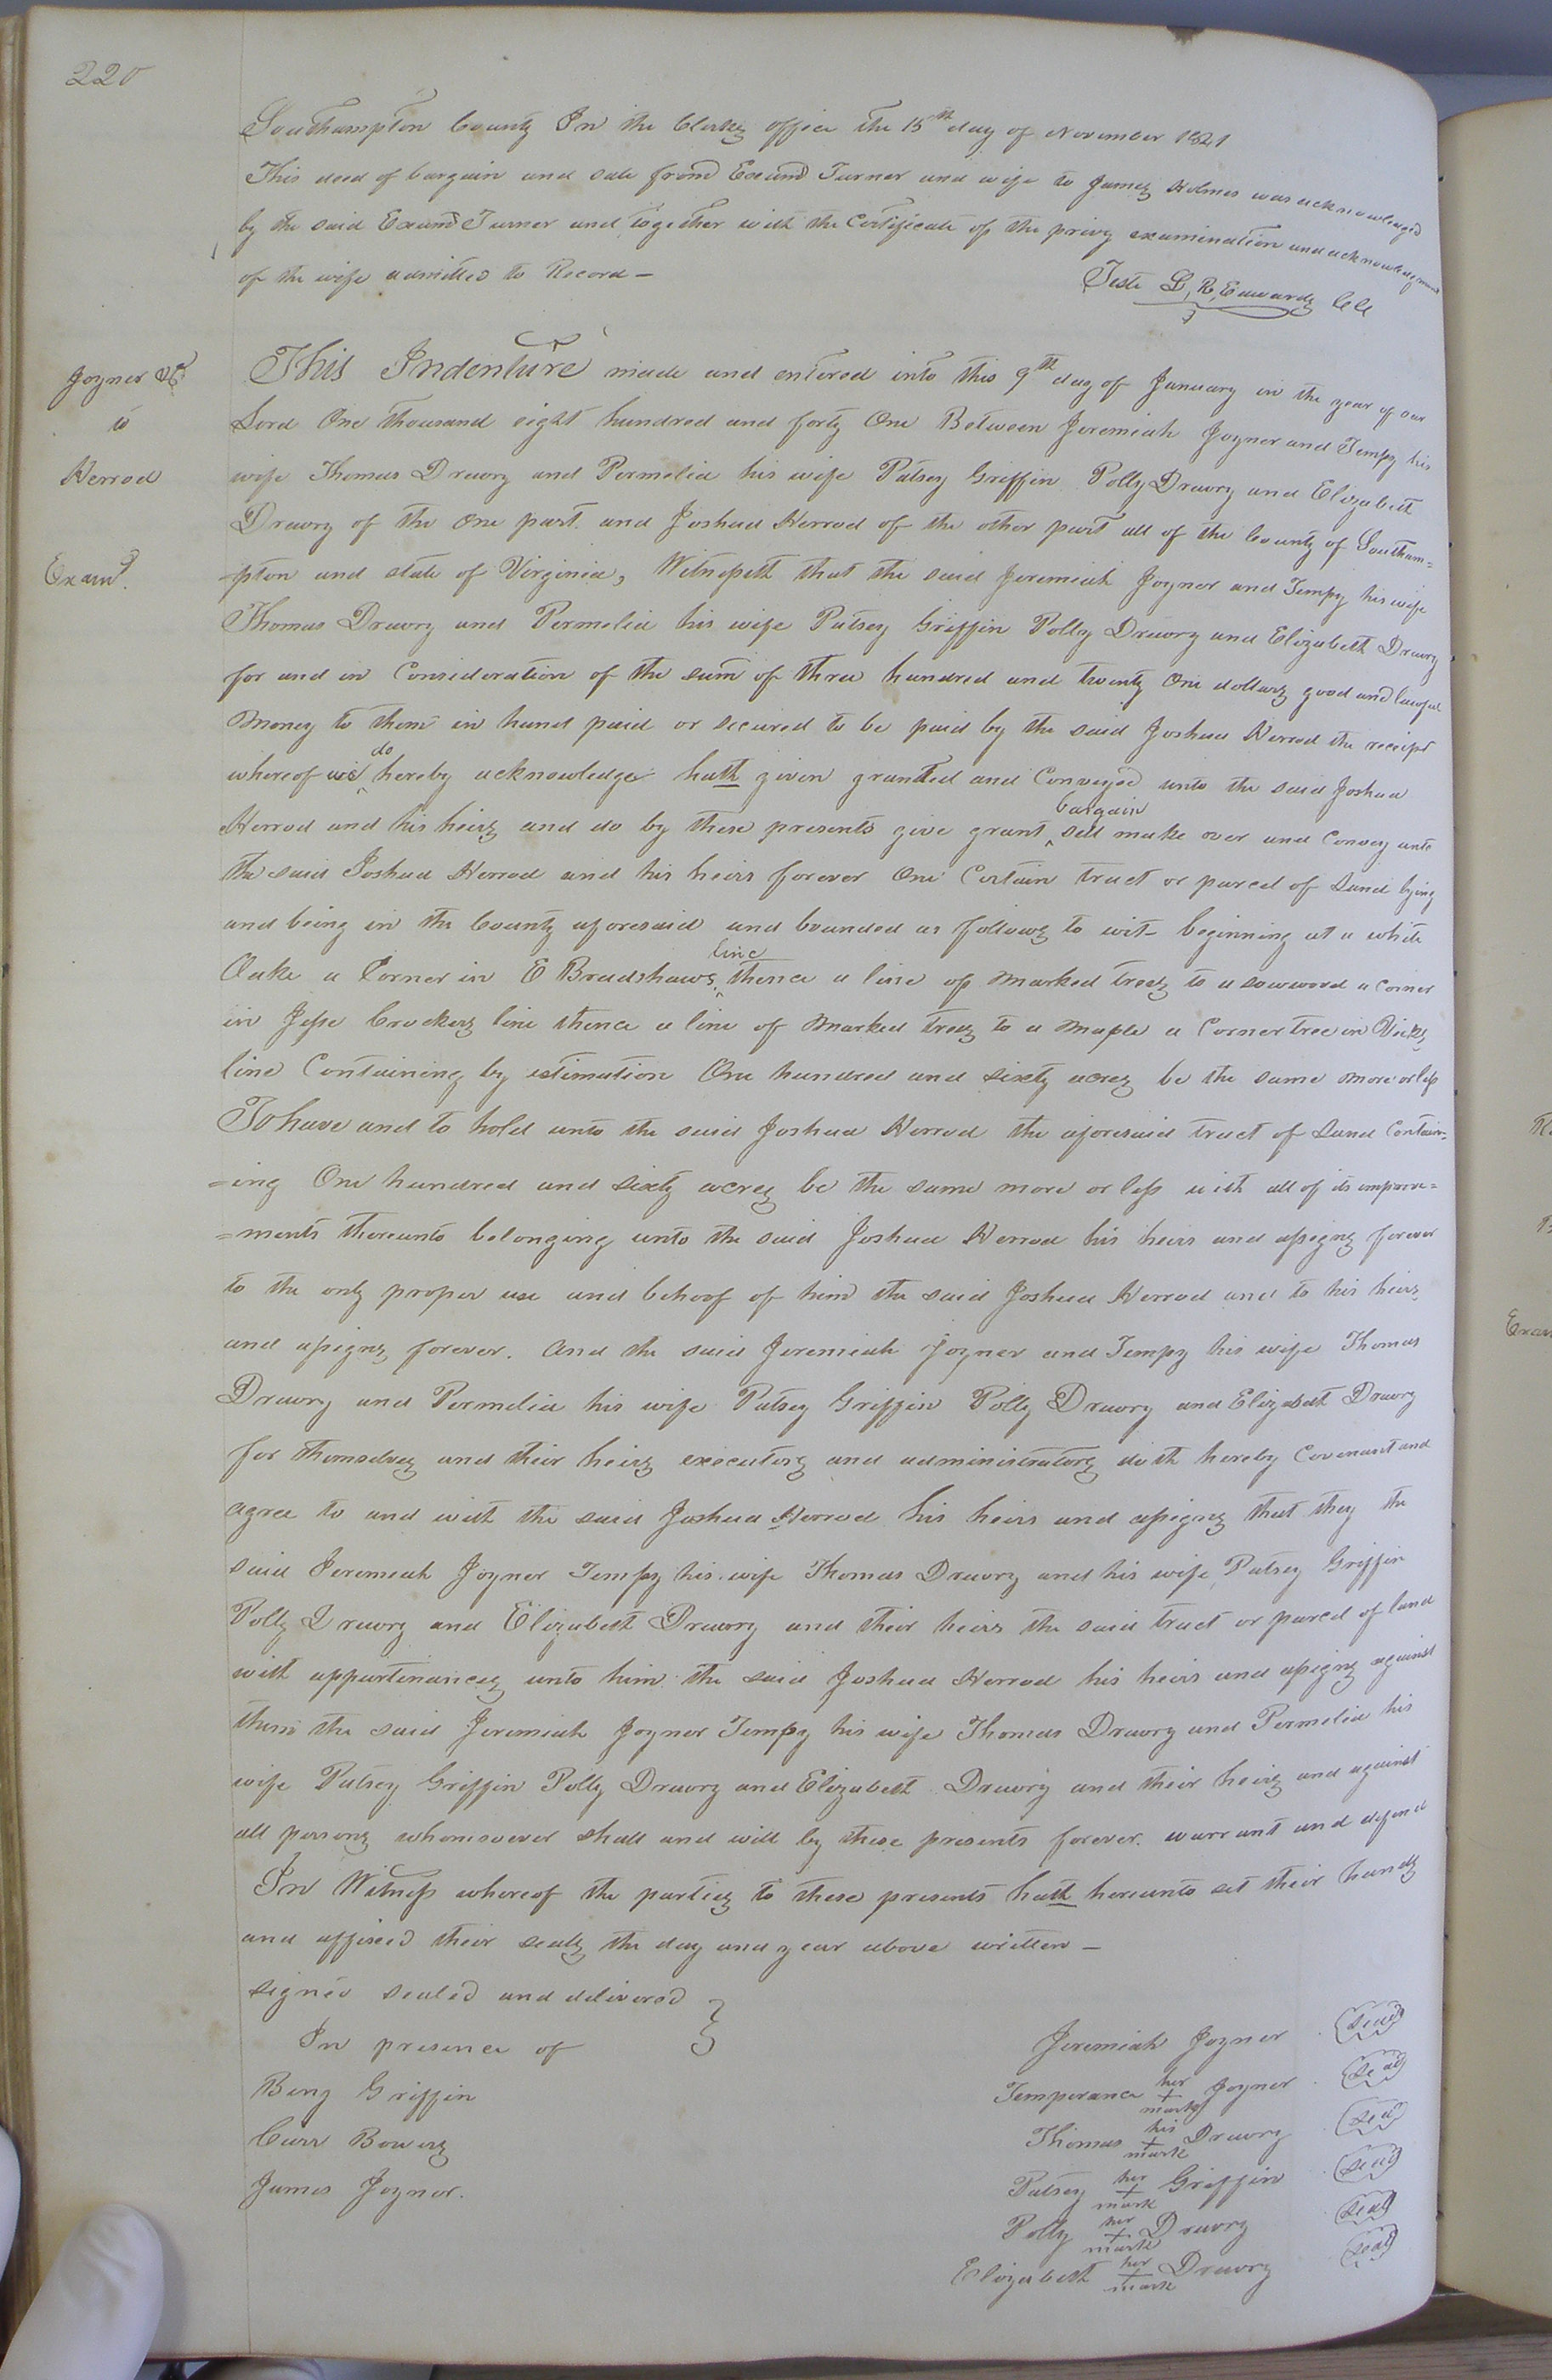 220
Southampton County In the Clerks office the 15th day of November 1841
This deed of bargain and sale from Exum Turner and wife to James Holmes was acknowledged
by the said Exum Turner and together with the Certificate of the privy examination and acknowledgment
of the wife admitted to Record –
Teste L, R, Edwards CC
Joyner &
to
Herrod
Examd.
This Indenture made and entered into this 9th day of January in the year of our
Lord One thousand eight hundred and forty One Between Jeremiah Joyner and Tempy his
wife Thomas Drewry and Permelia his wife Patsey Griffin Polly Drewry and Elizabeth
Drewry of the one part and Joshua Herrod of the other part all of the County of Southam=
-pton and state of Virginia, Witnesseth that the said Jeremiah Joyner and Tempy his wife
Thomas Drewry and Permelia his wife Patsey Griffin Polly Drewry and Elizabeth Drewry
for and in Consideration of the sum of three hundred and twenty One dollars good and lawful
Money to them in hand paid or secured to be paid by the said Joshua Herrod the receipt
whereof we do hereby acknowledge hath given granted and Conveyed unto the said Joshua
Herrod and his heirs and do by these presents give grant bargain sell make over and Convey unto
the said Joshua Herrod and his heirs forever One Certain tract or parcel of Land lying
and being in the County aforesaid and bounded as follows to wit – beginning at a white
Oake a Corner in E Bradshaws line thence a line of Marked trees to a sowwood a Corner
in Jesse Crockers line thence a line of Marked trees to a Maple a Corner tree in Vicks
line Containing by estimation One hundred and sixty acres be the same more or less
To have and to hold unto the said Joshua Herrod the aforesaid tract of Land Contain=
=ing One hundred and sixty acres be the same more or less with all of its improve=
=ments thereunto belonging unto the said Joshua Herrod his heirs and assigns forever
to the only proper use and behoof of him the said Joshua Herrod and to his heirs
and assigns forever. And the said Jeremiah Joyner and Tempy his wife Thomas
Drewry and Permelia his wife Patsey Griffin Polly Drewry and Elizabeth Drewry
for themselves and their heirs executors and administrators doth hereby Covenant and
agree to and with the said Joshua Herrod his heirs and assigns that they the
said Jeremiah Joyner Tempy his wife Thomas Drewry and his wife Patsey Griffin
Polly Drewry and Elizabeth Drewry and their heirs the said tract or parcel of land
with appurtinances unto him the said Joshua Herrod his heirs and assigns against
them the said Jeremiah Joyner Tempy his wife Thomas Drewry and Permelia his
wife Patsey Griffin Polly Drewry and Elizabeth Drewry and their heirs and against
all persons whomsoever shall and will by these presents forever warrant and defend
In Witness whereof the parties to these presents hath hereunto set their hands
and affixed their seals the day and year above written –
signed sealed and delivered
In presence of
Benj Griffin
Carr Bowers
James Joyner.
Jeremiah Joyner seal
Temperance her + mark Joyner seal
Thomas his + mark Drewry seal
Patsey her + mark Griffin seal
Polly her + mark Drewry seal
Elizabeth her + mark Drewry seal